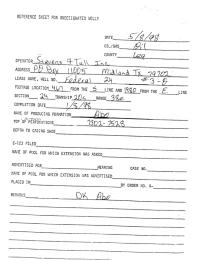 REFERENCE SHEET FOR UNDESIGNATED WELLS
DATE 5/8/98
CO./GAS Oil
COUNTY Lea
OPERATOR Stevens & Tull Inc
ADDRESS PO Box 11005 Midland Tx 79702
LEASE NAME, WELL NO. Federal 24 #3-O
FOOTAGE LOCATION 467 FROM THE S LINE AND 1980 FROM THE E LINE
SECTION 24 TOWNSHIP 20s RANGE 38e
COMPLETION DATE 1/5/98
NAME OF PRODUCING FORMATION Abo
TOP OF PERFORATIONS 7302-7528
DEPTH TO CASING SHOE
C-123 FILED
NAME OF POOL FOR WHICH EXTENSION WAS ASKED
ADVERTISED FOR HEARING CASE NO.
NAME OF POOL FOR WHICH EXTENSION WAS ADVERTISED
PLACED IN BY ORDER NO. R-
REMARKS
DK Abo